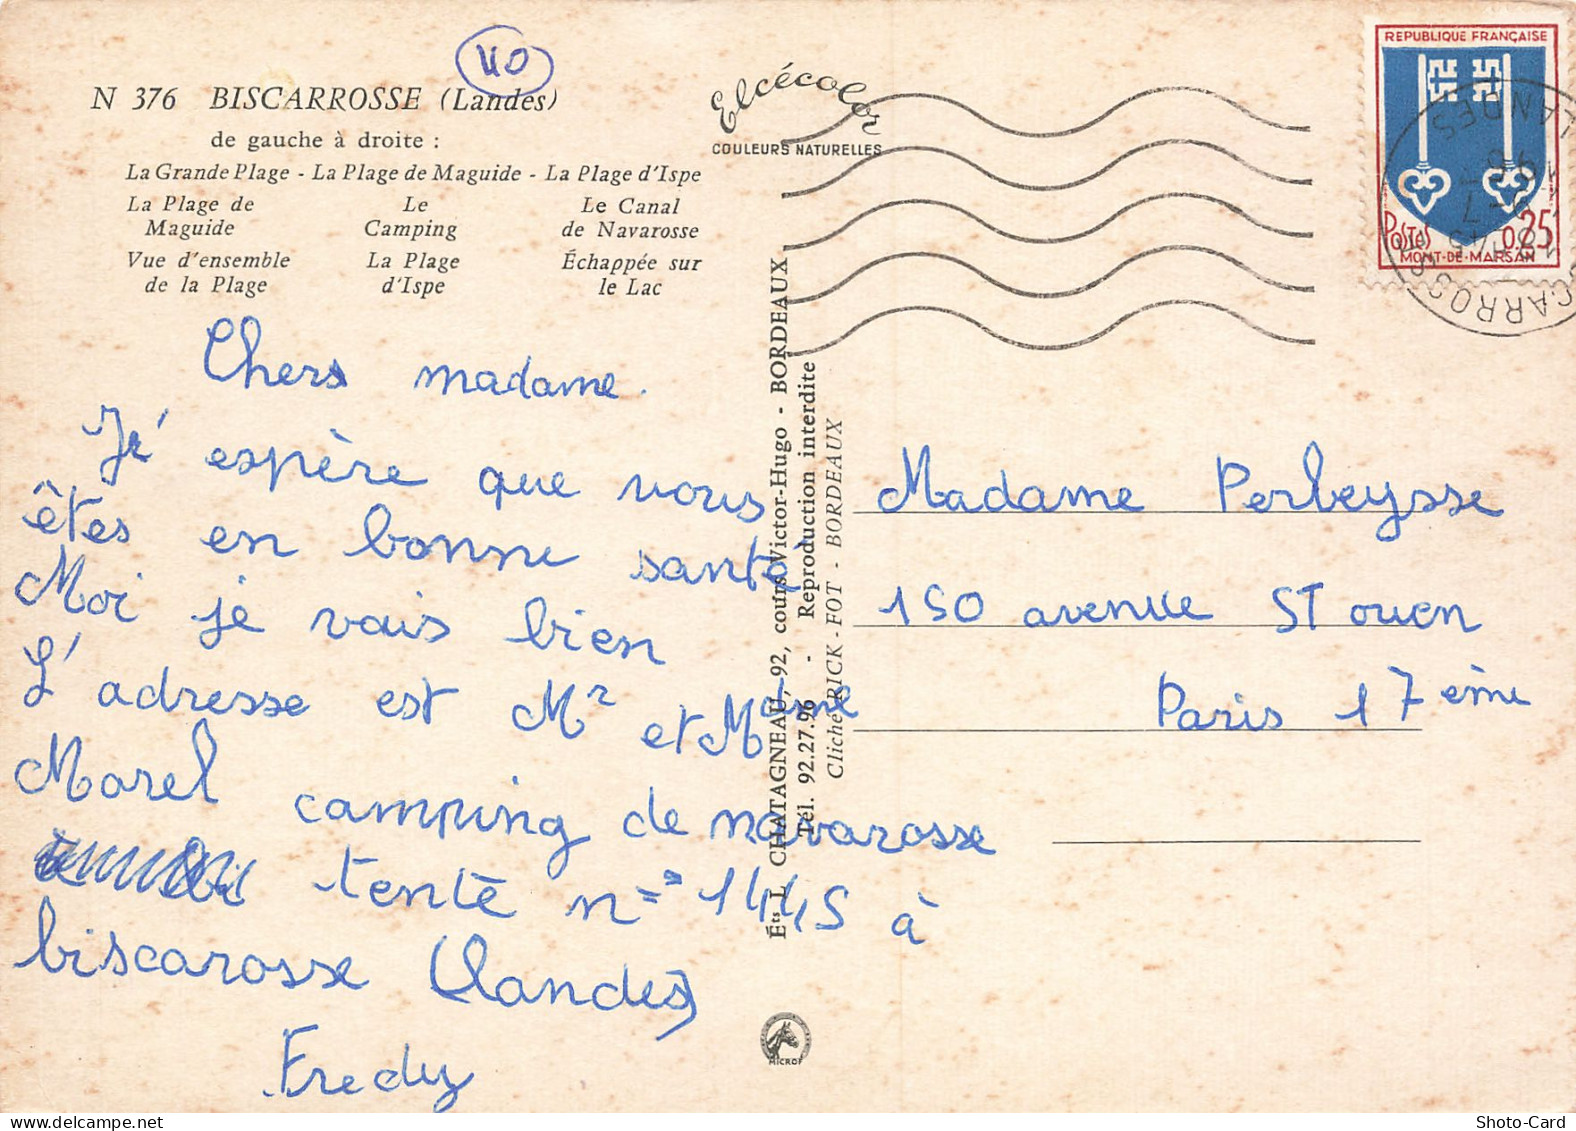 40
N 376 BISCARROSSE (Landes)
de gauche à droite :
La Grande Plage - La Plage de Maguide - La Plage d'Ispe
La Plage de Maguide
Le Camping
Le Canal de Navarosse
Vue d'ensemble de la Plage
La Plage d'Ispe
Échappée sur le Lac
Elcécolor
COULEURS NATURELLES
REPUBLIQUE FRANÇAISE
POSTES 0,25
MONT-DE-MARSAN
LANDES
Chers madame.
Je' espère que vous
êtes en bonne santé
Moi je vais bien
L'adresse est Mr et Mdme
Morel camping de navarosse
tente n=° 1445 à
biscarosse (landes)
Fredy
Éts L. CHATAGNEAU, 92, cours Victor-Hugo - BORDEAUX
Tél. 92.27.96 - Reproduction interdite
Cliché RICK-FOT - BORDEAUX
Madame Perbeysse
150 avenue ST ouen
Paris 17ème
MICROF
Shoto-Card